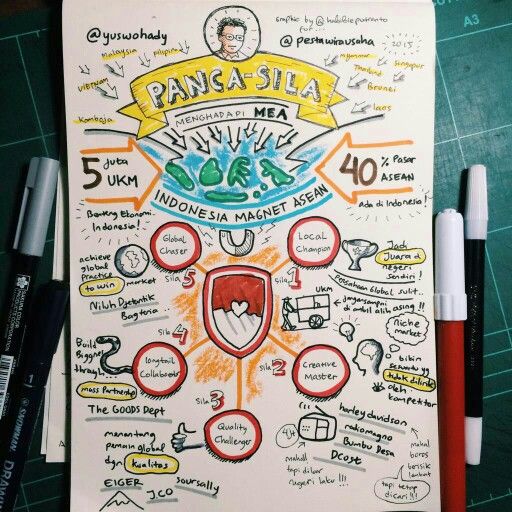 @yuswohady
graphic by @habibieputranto
for...
@pestawirausaha
2015
Malaysia
Filipina
Vietnam
Kamboja
Myanmar
Thailand
Singapur
Brunei
Laos
PANCA-SILA
MENGHADAPI MEA
5 Juta
UKM
40% Pasar
ASEAN
INDONESIA MAGNET ASEAN
Benteng Ekonomi
Indonesia!
Ada di Indonesia!
Global
Chaser
Sila 5
achieve
global
Practice
to win market
Niluh Djelantik
Bagteria
Local
Champion
Sila 1
Jadi
Juara di
negeri
sendiri!
Perusahaan Global sulit..
UKM
jangan sampai
di ambil alih asing!!
niche
market
Longtail
Collaborator
Sila 4
Build
Bigger
through...
mass Partnership
The GOODS Dept
Creative
Master
Sila 2
bikin
sesuatu yg
tidak dilirik
oleh
kompetitor
harley davidson
radiomagno
Bumbu Desa
DCost
4 Jt
mahal!
tapi diluar
negeri laku!!!
mahal
boros
berisik
lambat
tapi tetap
dicari!!!
Quality
Challenger
Sila 3
menantang
pemain global
dgn kualitas
EIGER
J.CO
soursally
A3
SAKURA
SNOWMAN
DRAWING